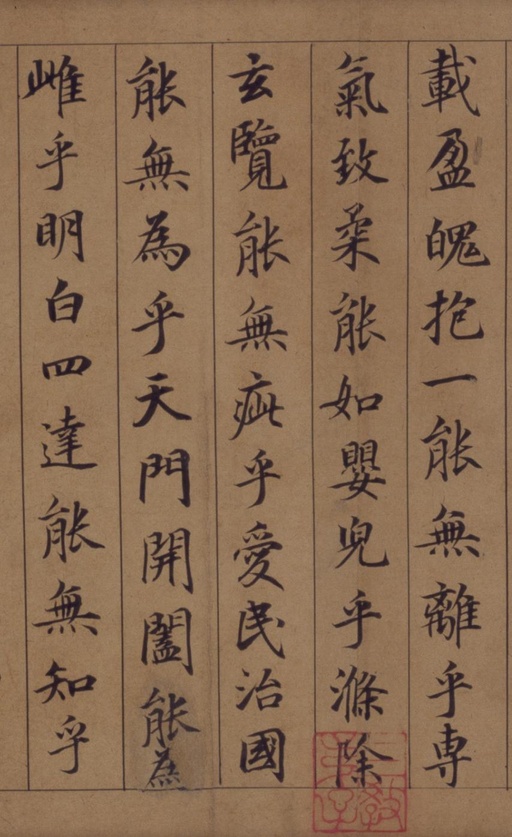 載盈魄抱一能無離乎専
氣致柔能如嬰兒乎滌除
玄覽能無疵乎愛民治國
能無為乎天門開闔能無
雌乎明白四達能無知乎